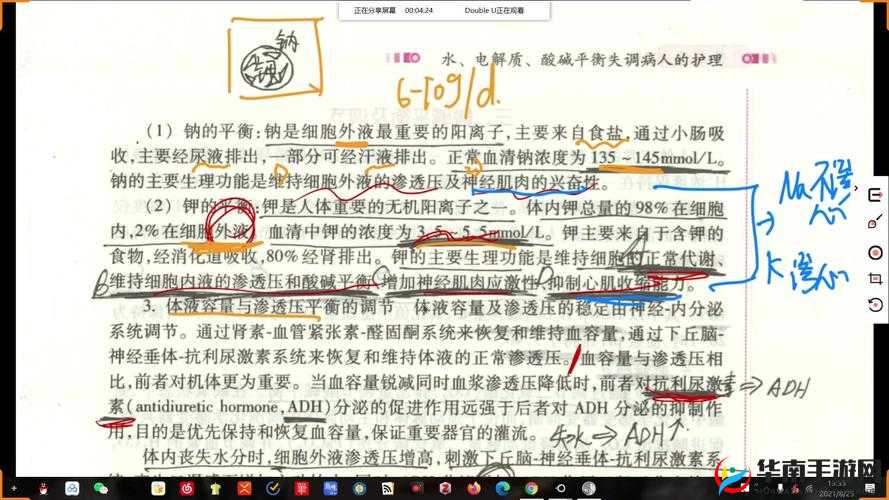 正在分享屏幕 00:04:24 Double U正在观看
钠
钾
水、电解质、酸碱平衡失调病人的护理
6-10g/d.
(1) 钠的平衡:钠是细胞外液最重要的阳离子,主要来自食盐,通过小肠吸
收,主要经尿液排出,一部分可经汗液排出。正常血清钠浓度为135~145mmol/L。
钠的主要生理功能是维持细胞外液的渗透压及神经肌肉的兴奋性。
(2) 钾的平衡:钾是人体重要的无机阳离子之一。体内钾总量的98%在细胞
内,2%在细胞外液。血清中钾的浓度为3.5~5.5mmol/L。钾主要来自于含钾的
食物,经消化道吸收,80%经肾排出。钾的主要生理功能是维持细胞的正常代谢、
维持细胞内液的渗透压和酸碱平衡、增加神经肌肉应激性、抑制心肌收缩能力。
3. 体液容量与渗透压平衡的调节 体液容量及渗透压的稳定由神经-内分泌
系统调节。通过肾素-血管紧张素-醛固酮系统来恢复和维持血容量,通过下丘脑-
神经垂体-抗利尿激素系统来恢复和维持体液的正常渗透压。血容量与渗透压相
比,前者对机体更为重要。当血容量锐减同时血浆渗透压降低时,前者对抗利尿激
素(antidiuretic hormone,ADH)分泌的促进作用远强于后者对ADH分泌的抑制作
用,目的是优先保持和恢复血容量,保证重要器官的灌流。
体内丧失水分时,细胞外液渗透压增高,刺激下丘脑-神经垂体-抗利尿激素系
Na
K
B
C
D
⇒ ADH
失水⇒ADH↑
华南手游网
15:55
2021/8/25